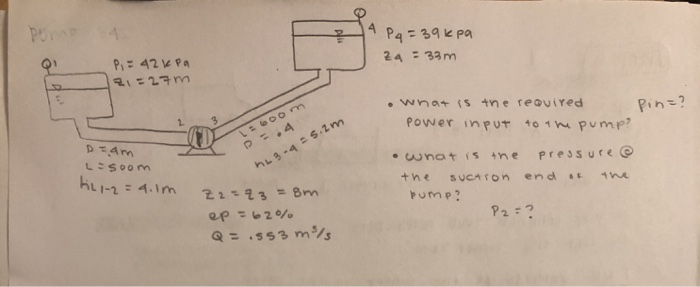 1
P₁ = 42 kPa
z₁ = 27m
4
P4 = 39 kpa
z4 = 33m
2
3
L = 600m
D = .4
hL 3-4 = 5.2m
D = .4m
L = 500m
hL 1-2 = 4.1m
z2 = z3 = 8m
ep = 62%
Q = .553 m³/s
• what is the required Pin = ?
power input to the pump?
• what is the pressure @
the suction end of the
pump?
P2 = ?